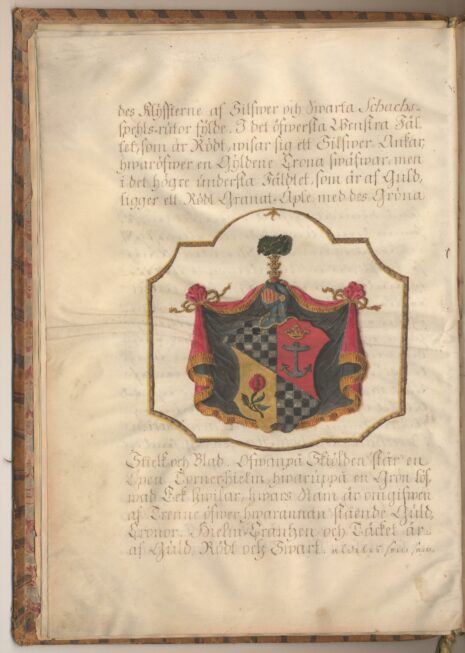 des Klyffterne af Silfwer och Swarta Schachs-
spehls-rutor fylde. I det öfwersta Wenstra Fäl-
tet, som är Rödt, wisar sig ett Silfwer Ankar,
hwaröfwer en Gyldene Crona swäfwar, men
i det högre understa Fäldtet, som är af Guld,
ligger ett Rödt Granat-Aple, med des Gröna
Stielk och Blad. Ofwanpå Skiölden står en
Open Torner-Hielm, hwaruppå en Grön löf-
wad Eek hwilar, hwars Stam är omgifwen
af Trenne öfwer hwarannan stående Guld
Cronor. Hielm-Crantzen och Täcket är
af Guld, Rödt och Swart. aldeles som